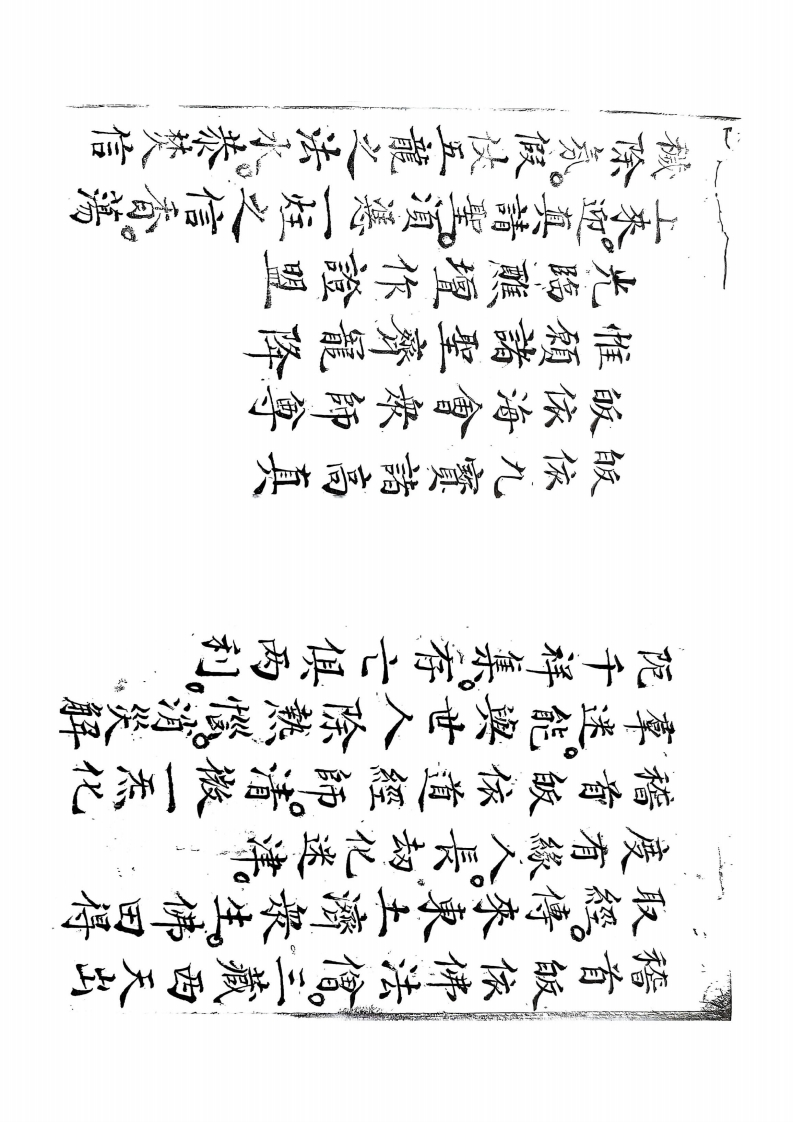 稽首皈依佛法僧。三藏西天出
取經。傳來東土濟眾生。佛田得
度有緣人。長劫化迷津。
稽首皈依道經師。清微一炁化
羣迷。能與世人除熱惱。消災解
阨千祥集。存亡俱兩利。
皈依九寰諸高真
皈依海會眾師尊
惟願諸聖齊寵降
光臨醮壇作證盟
上來迎真請聖。須憑一炷之信香。蕩
穢除氛。假仗五龍之法水。恭焚信